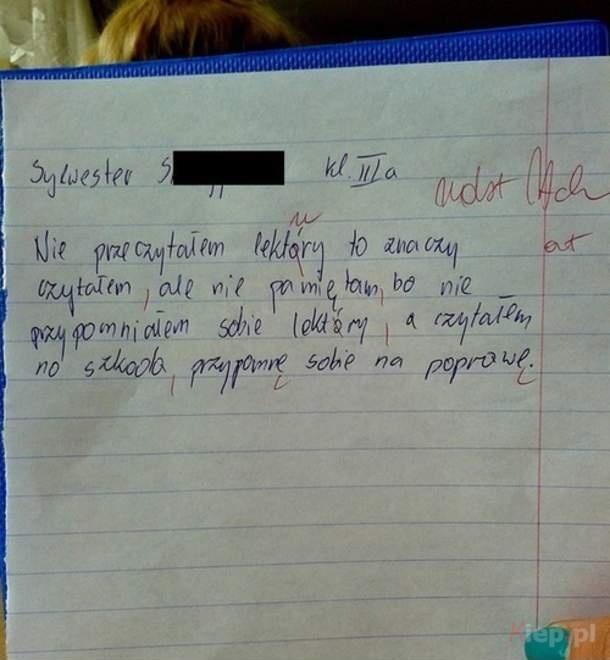 Sylwester S kl. III a
ndst
u
Nie przeczytałem lektóry to znaczy ort
czytałem, ale nie pamiętam, bo nie
przypomniałem sobie lektóry, a czytałem
no szkoda, przypomnę sobie na poprawę.
Kiep.pl